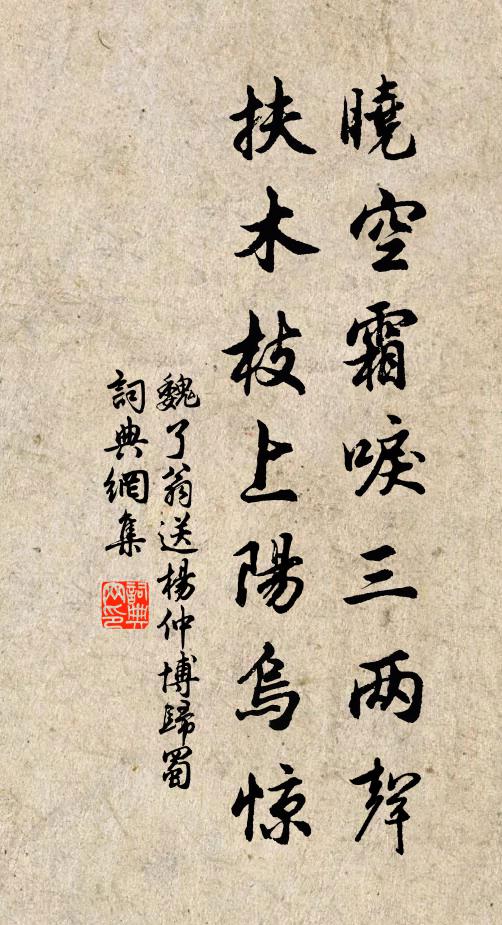 曉空霜唳三两聲
扶木枝上陽烏惊
魏了翁送楊仲博歸蜀
詞典網集
詞典
网印